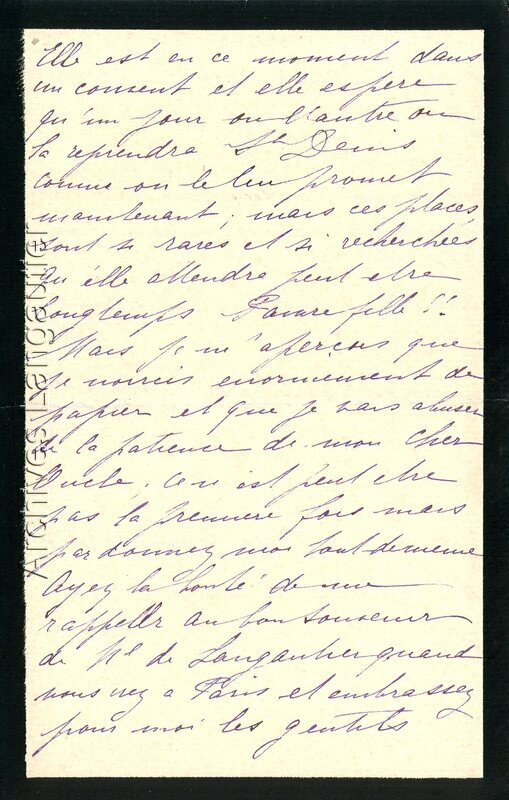 Elle est en ce moment dans
un couvent et elle espere
qu'un jour ou l'autre on
la reprendra St Denis
comme on le leu promet
maintenant, mais ces places
sont si rares et si recherchées
qu'elle attendra peut etre
longtemps Pauvre fille !!
Mais je m'aperçois que
je noircis enormement de
papier et que je vais abuser
de la patience de mon Cher
Oncle, ce n'est peut etre
pas la premiere fois mais
pardonnez moi tout de meme
Ayez la bonté de me
rappeler au bon souvenir
de de quand
vous irez a Paris et embrassez
pour moi les gentils
Archives-Lenguerrand